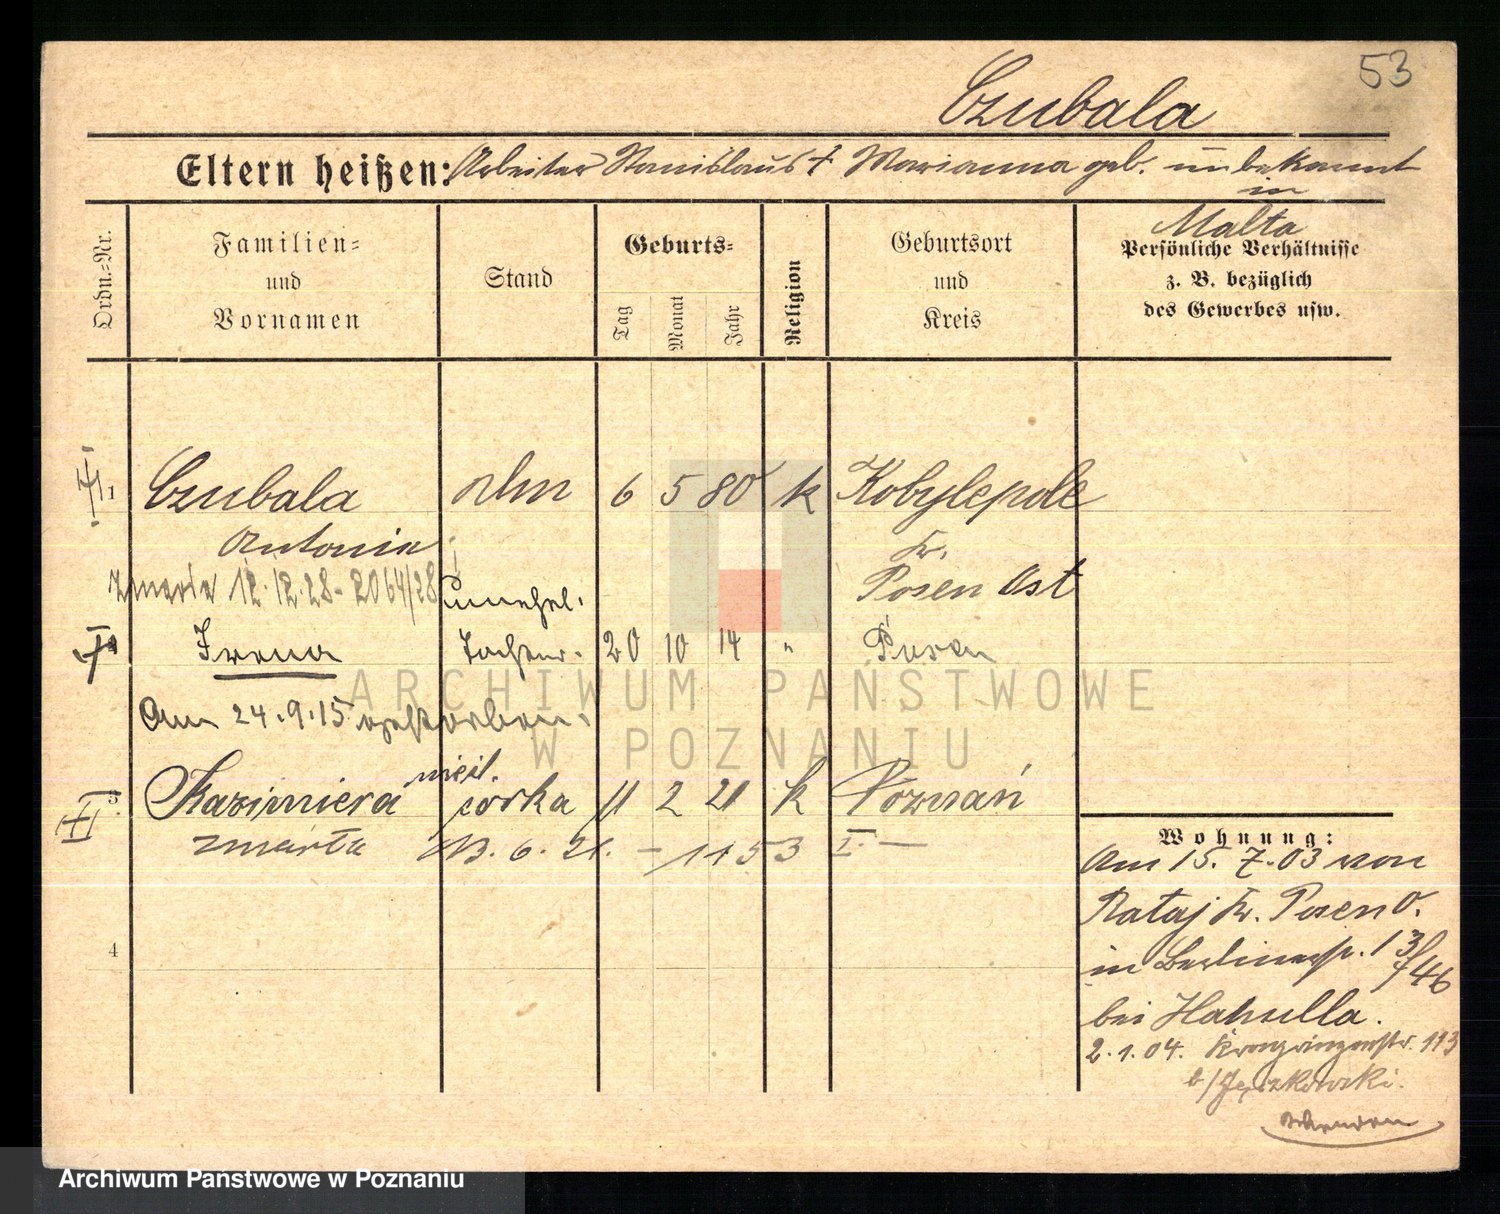 53
Czubala
Eltern heißen: Arbeiter Stanislaus + Marianna geb. unbekannt
in
Malta
Ordn.=Nr.
Familien=
und
Vornamen
Stand
Geburts=
Tag
Monat
Jahr
Religion
Geburtsort
und
Kreis
Persönliche Verhältnisse
z. B. bezüglich
des Gewerbes usw.
1 Czubala 6 5 80 k Kobylepole
Antonie Kr.
zmarła 12.12.28 - 2064/28 Posen Ost
unehel.
2 Irena Tochter. 20 10 14 " Posen
Am 24.9.15 gestorben.
nieśl.
3 Kazimiera córka 11 2 21 k Poznań
zmarła 13. 6. 21. - 1153 I. -
4
Wohnung:
Am 15. 7. 03 von
Rataj Kr. Posen O.
in Berlinerstr. 13/
46
bei
2. 1. 04. Kronprinzenstr. 113
b/
ARCHIWUM PAŃSTWOWE
W POZNANIU
Archiwum Państwowe w Poznaniu